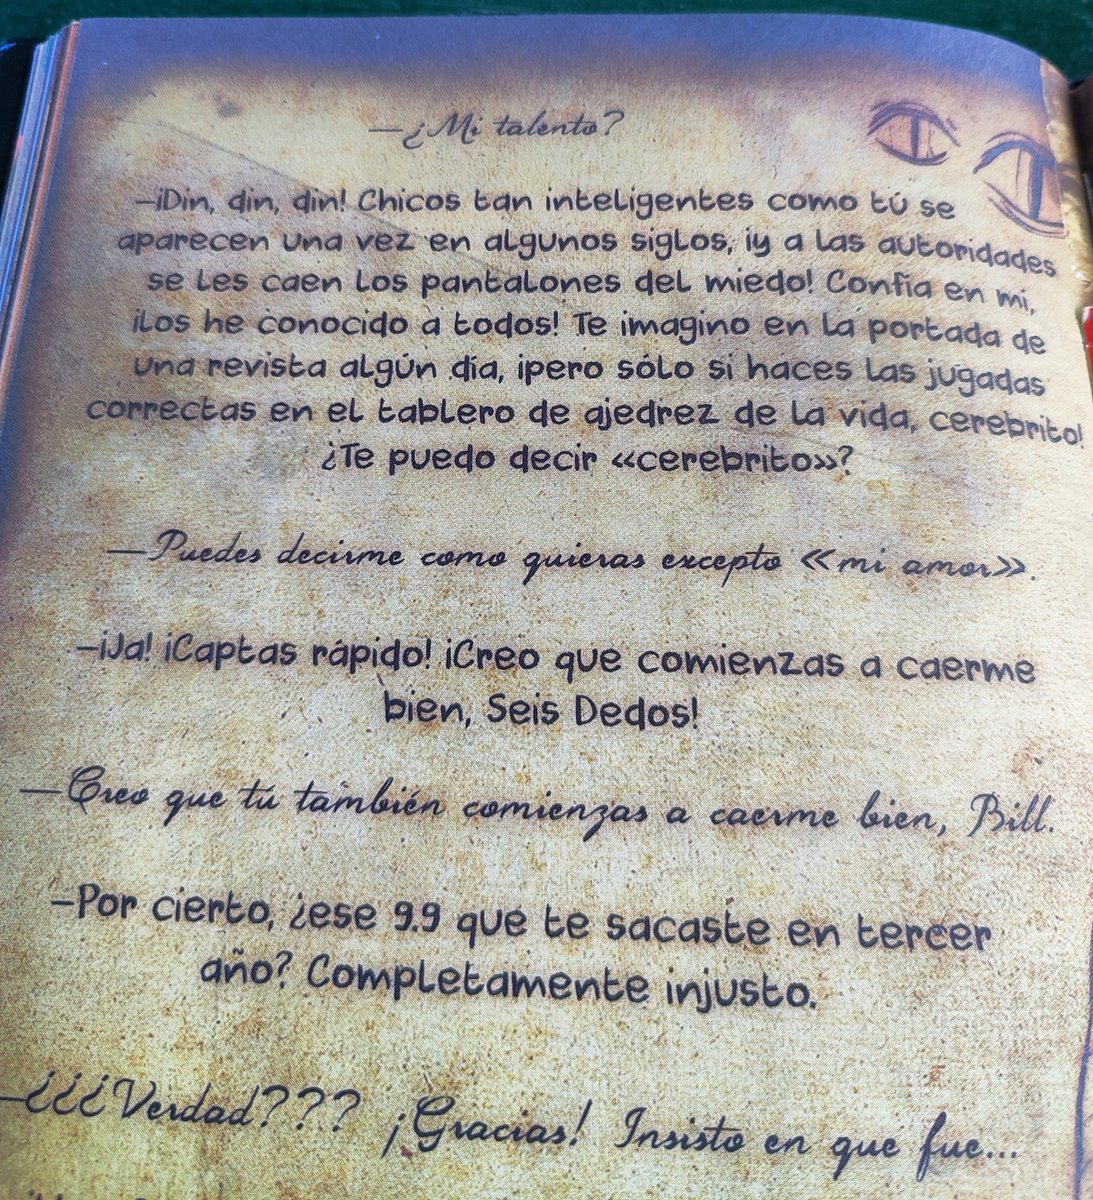 —¿Mi talento?
—¡Din, din, din! Chicos tan inteligentes como tú se
aparecen una vez en algunos siglos, ¡y a las autoridades
se les caen los pantalones del miedo! Confía en mí,
¡los he conocido a todos! Te imagino en la portada de
una revista algún día, ¡pero sólo si haces las jugadas
correctas en el tablero de ajedrez de la vida, cerebrito!
¿Te puedo decir «cerebrito»?
—Puedes decirme como quieras excepto «mi amor».
—¡Ja! ¡Captas rápido! ¡Creo que comienzas a caerme
bien, Seis Dedos!
—Creo que tú también comienzas a caerme bien, Bill.
—Por cierto, ¿ese 9.9 que te sacaste en tercer
año? Completamente injusto.
—¿¿¿Verdad??? ¡Gracias! Insisto en que fue...